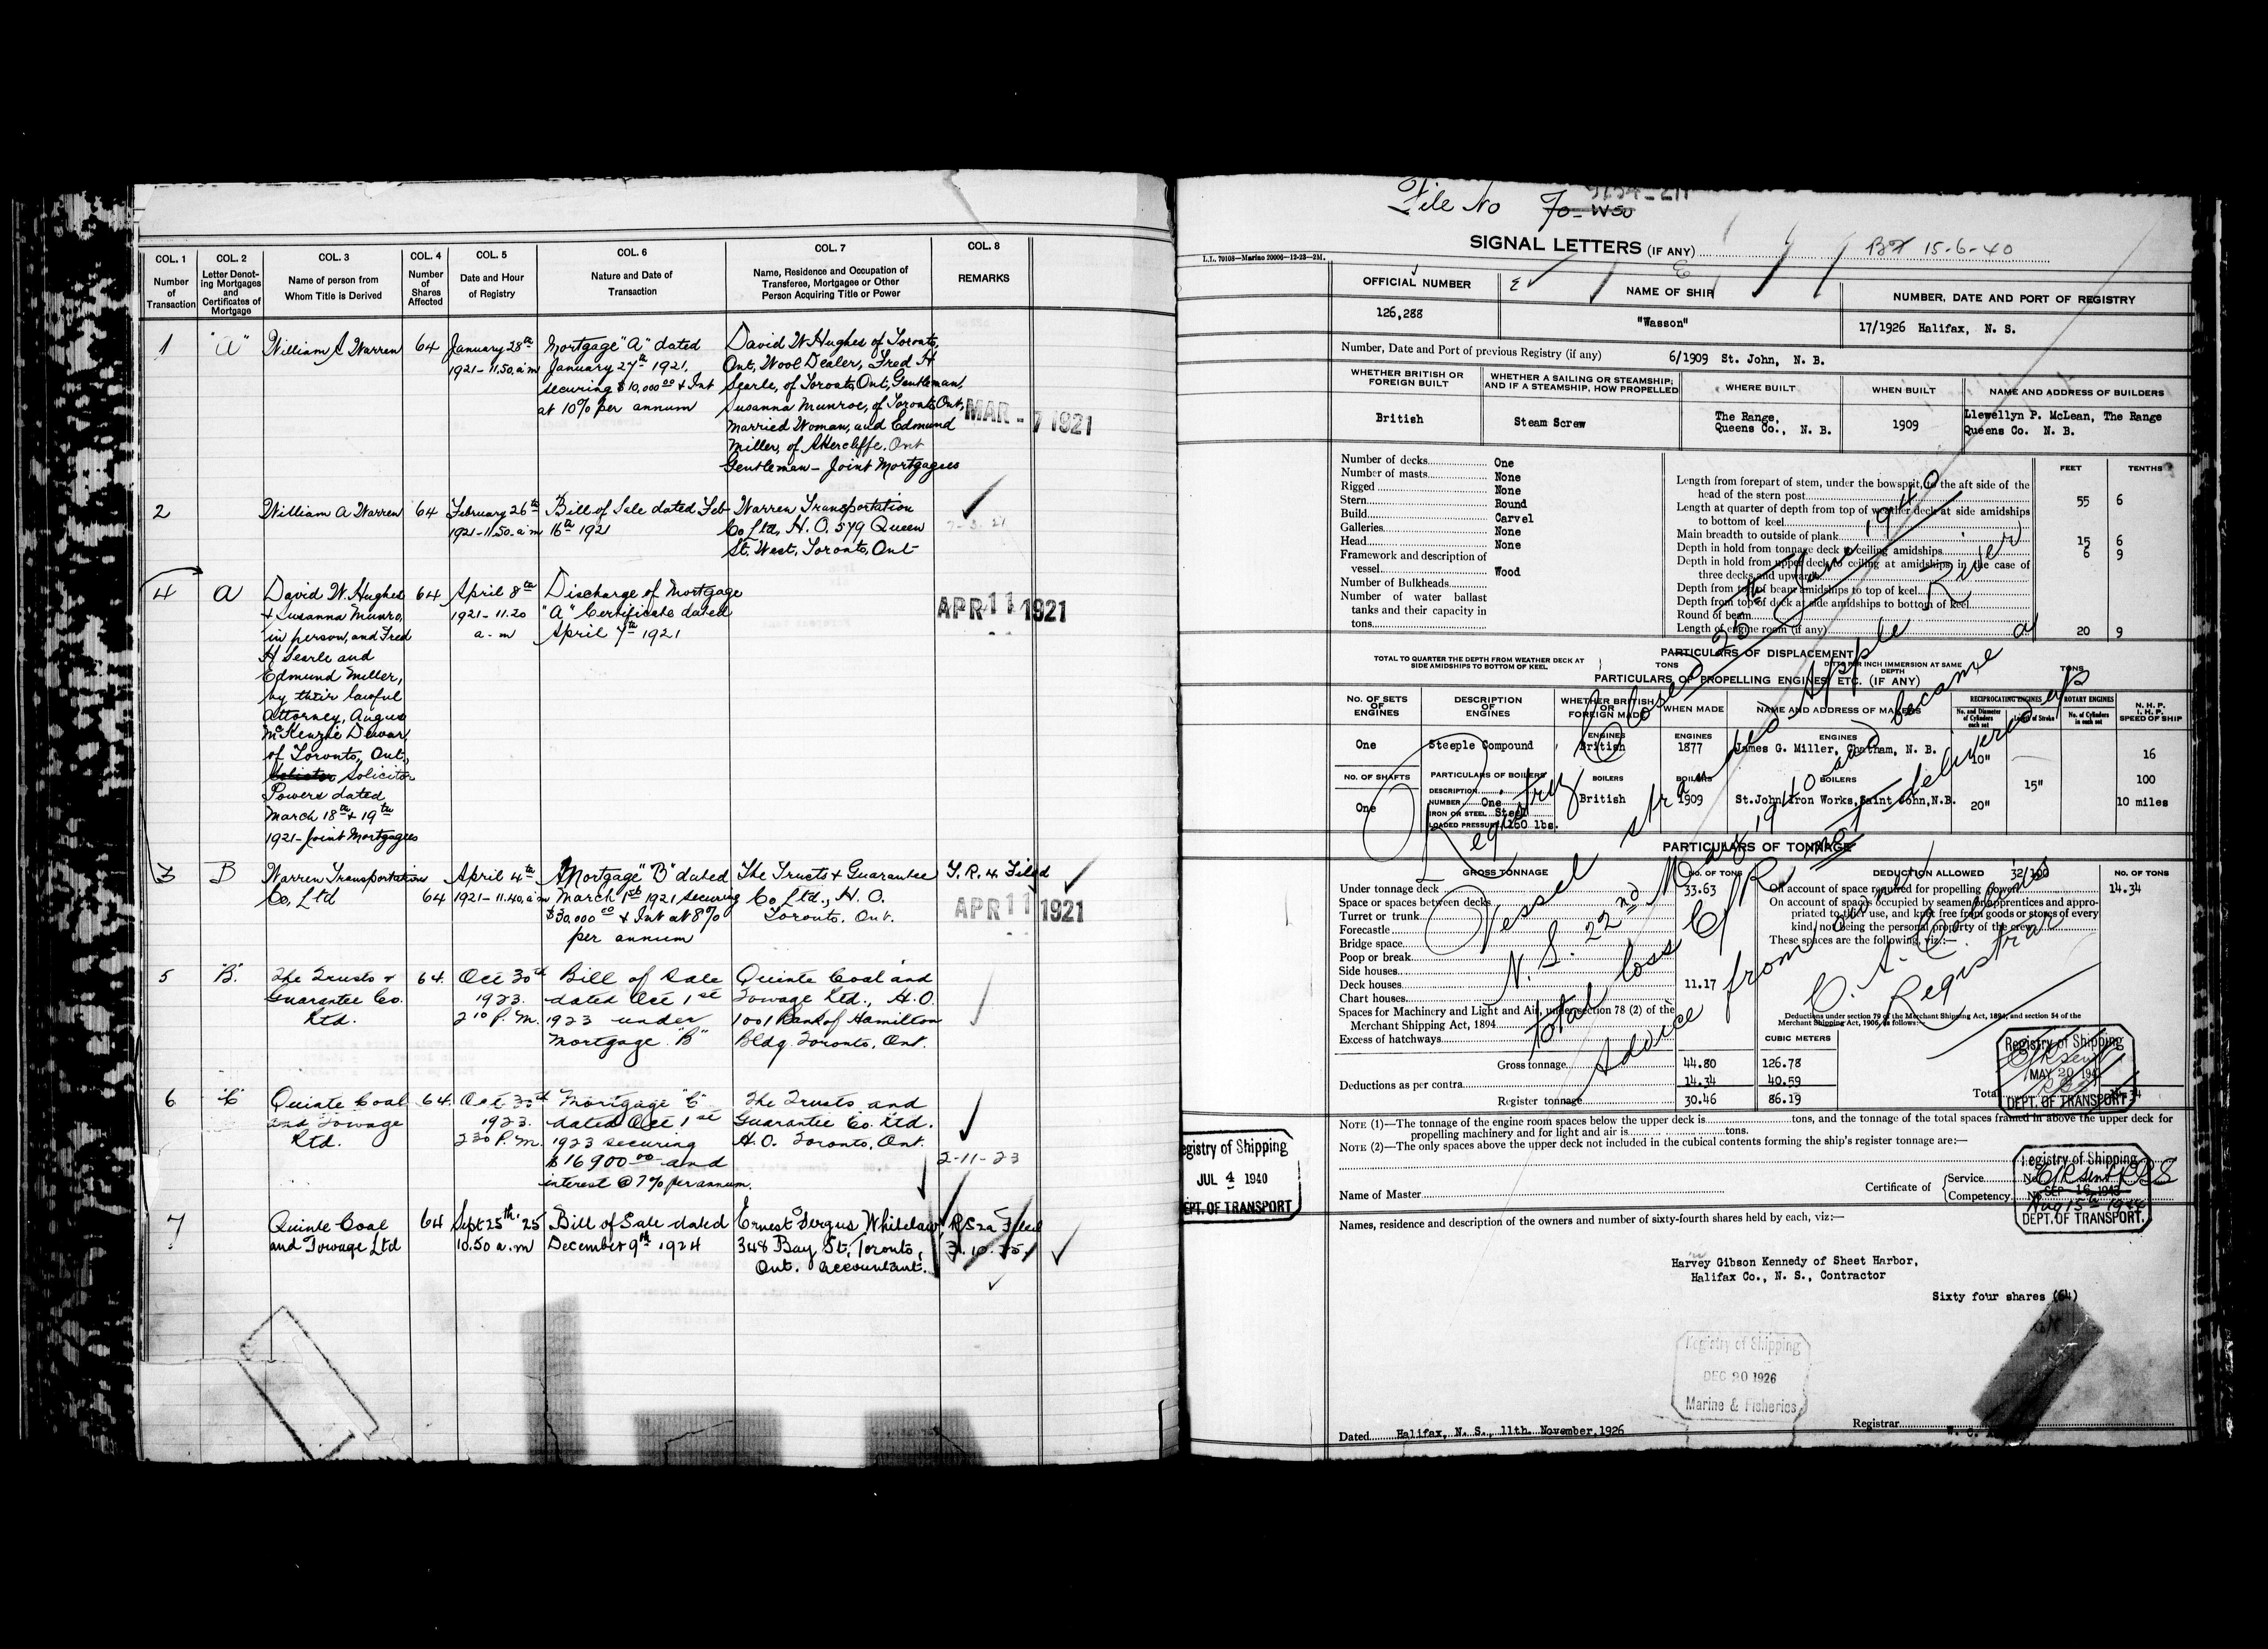 COL. 1
Number
of
Transaction
COL. 2
Letter Denot-
ing Mortgages
and
Certificates of
Mortgage
COL. 3
Name of person from
Whom Title is Derived
COL. 4
Number
of
Shares
Affected
COL. 5
Date and Hour
of Registry
COL. 6
Nature and Date of
Transaction
COL. 7
Name, Residence and Occupation of
Transferee, Mortgagee or Other
Person Acquiring Title or Power
COL. 8
REMARKS
1
"A"
William A Warren
64
January 28th
1921-11.50. a.m
Mortgage "A" dated
January 27th 1921,
securing $10,000.00 & Int
at 10% per annum
David W. Hughes of Toronto,
Ont, Wool Dealer, Fred H
Searle, of Toronto Ont, Gentleman,
Susanna Munroe, of Toronto Ont,
Married Woman, and Edmund
Miller, of Ont
Gentleman - Joint Mortgagees
MAR - 7 1921
2
William A Warren
64
February 26th
1921-11.50. a.m
Bill of Sale dated Feb
16th 1921
Warren Transportation
Co Ltd, H. O. 579 Queen
St. West, Toronto, Ont-
4
A
David W. Hughes
& Susanna Munro,
in person, and Fred
H Searle and
Edmund Miller,
by their lawful
Attorney, Angus
McKenzie Dewar
of Toronto, Ont,
Solicitor
Powers dated
March 18th & 19th
1921-Joint Mortgagees
64
April 8th
1921-11.20
a-m
Discharge of Mortgage
"A" Certificate dated
April 7th 1921
APR 11 1921
3
B
Warren Transportation
Co, Ltd
64
April 4th
1921-11.40, a.m
Mortgage "B" dated
March 1st 1921 securing
$30,000.00 & Int at 8%
per annum
The Trusts & Guarantee
Co Ltd., H. O.
Toronto, Ont.
T. R. 4 Filed
APR 11 1921
5
"B".
The Trusts &
Guarantee Co.
Ltd.
64.
Oct 30th
1923.
2.10 P. M.
Bill of Sale
dated Oct 1st
1923 under
Mortgage "B"
Quinte Coal and
Towage Ltd., H.O.
1001 Bank of Hamilton
Bldg. Toronto, Ont.
6
"C"
Quinte Coal
and Towage
Ltd.
64.
Oct 30th
1923.
2.30 P. M.
Mortgage "C"
dated Oct 1st
1923 securing
$16900.00 and
interest @ 7% per annum.
The Trusts and
Guarantee Co. Ltd.
H.O. Toronto, Ont.
2-11-23
7
Quinte Coal
and Towage Ltd
64
Sept 25th '25
10.50 a.m
Bill of Sale dated
December 9th 1924
Ernest Fergus Whitelaw,
348 Bay St. Toronto,
Ont. accountant.
Filed
File No 70-W50
SIGNAL LETTERS (IF ANY)
15-6-40
L.L. 70108—Marine 20006—12-23—2M.
OFFICIAL NUMBER
NAME OF SHIP
NUMBER, DATE AND PORT OF REGISTRY
126,288
"Wasson"
17/1926 Halifax, N. S.
Number, Date and Port of previous Registry (if any)
6/1909 St. John, N. B.
WHETHER BRITISH OR
FOREIGN BUILT
WHETHER A SAILING OR STEAMSHIP;
AND IF A STEAMSHIP, HOW PROPELLED
WHERE BUILT
WHEN BUILT
NAME AND ADDRESS OF BUILDERS
British
Steam Screw
The Range,
Queens Co., N. B.
1909
Llewellyn P. McLean, The Range
Queens Co. N. B.
Number of decks One
Number of masts None
Rigged None
Stern Round
Build Carvel
Galleries None
Head None
Framework and description of
vessel Wood
Number of Bulkheads
Number of water ballast
tanks and their capacity in
tons
FEET TENTHS
Length from forepart of stem, under the bowsprit, to the aft side of the
head of the stern post 55 6
Length at quarter of depth from top of weather deck at side amidships
to bottom of keel
Main breadth to outside of plank 15 6
Depth in hold from tonnage deck to ceiling amidships 6 9
Depth in hold from upper deck to ceiling at amidships, in the case of
three decks and upwards
Depth from top of beam amidships to top of keel
Depth from top of deck at side amidships to bottom of keel
Round of beam
Length of engine room (if any) 20 9
PARTICULARS OF DISPLACEMENT
TOTAL TO QUARTER THE DEPTH FROM WEATHER DECK AT
SIDE AMIDSHIPS TO BOTTOM OF KEEL
TONS
DITTO PER INCH IMMERSION AT SAME
DEPTH
TONS
PARTICULARS OF PROPELLING ENGINES, ETC. (IF ANY)
NO. OF SETS
OF
ENGINES
DESCRIPTION
OF
ENGINES
WHETHER BRITISH
OR
FOREIGN MADE
WHEN MADE
NAME AND ADDRESS OF MAKERS
RECIPROCATING ENGINES
No. and Diameter
of Cylinders
each set
Length of Stroke
ROTARY ENGINES
No. of Cylinders
in each set
N. H. P.
I. H. P.
SPEED OF SHIP
One
Steeple Compound
ENGINES
British
ENGINES
1877
ENGINES
James G. Miller, Chatham, N. B.
10"
16
NO. OF SHAFTS
PARTICULARS OF BOILERS
DESCRIPTION
BOILERS
BOILERS
BOILERS
15"
100
One
NUMBER One
IRON OR STEEL Steel
LOADED PRESSURE 150 lbs.
British
1909
St.John Iron Works, Saint John, N.B.
20"
10 miles
PARTICULARS OF TONNAGE
GROSS TONNAGE
NO. OF TONS
DEDUCTION ALLOWED
32/100
NO. OF TONS
Under tonnage deck 33.63
Space or spaces between decks
Turret or trunk
Forecastle
Bridge space
Poop or break
Side houses
Deck houses 11.17
Chart houses
Spaces for Machinery and Light and Air, under section 78 (2) of the
Merchant Shipping Act, 1894
Excess of hatchways
On account of space required for propelling power 14.34
On account of spaces occupied by seamen or apprentices and appro-
priated to their use, and kept free from goods or stores of every
kind, not being the personal property of the crew
These spaces are the following, viz:—
Deductions under section 79 of the Merchant Shipping Act, 1894, and section 54 of the
Merchant Shipping Act, 1906, as follows:—
CUBIC METERS
Gross tonnage 44.80 126.78
Deductions as per contra 14.34 40.59
Register tonnage 30.46 86.19
Total
Registry of Shipping
MAY 20 194
DEPT. OF TRANSPORT
Registry closed 25th June 1940
Vessel stranded Apple River
N. S. 22nd May 1940 and became a
total loss C/R not delivered up
Advice from owner
C. A. Collins
Registrar
NOTE (1)—The tonnage of the engine room spaces below the upper deck is tons, and the tonnage of the total spaces framed in above the upper deck for
propelling machinery and for light and air is tons.
NOTE (2)—The only spaces above the upper deck not included in the cubical contents forming the ship's register tonnage are:—
Registry of Shipping
JUL 4 1940
DEPT. OF TRANSPORT
Name of Master
Certificate of
Service No
Competency No
Registry of Shipping
DEPT. OF TRANSPORT.
Names, residence and description of the owners and number of sixty-fourth shares held by each, viz:—
Harvey Gibson Kennedy of Sheet Harbor,
Halifax Co., N. S., Contractor
Sixty four shares (64)
Registry of Shipping
DEC 20 1926
Marine & Fisheries
Dated Halifax, N. S., 11th. November, 1926
Registrar